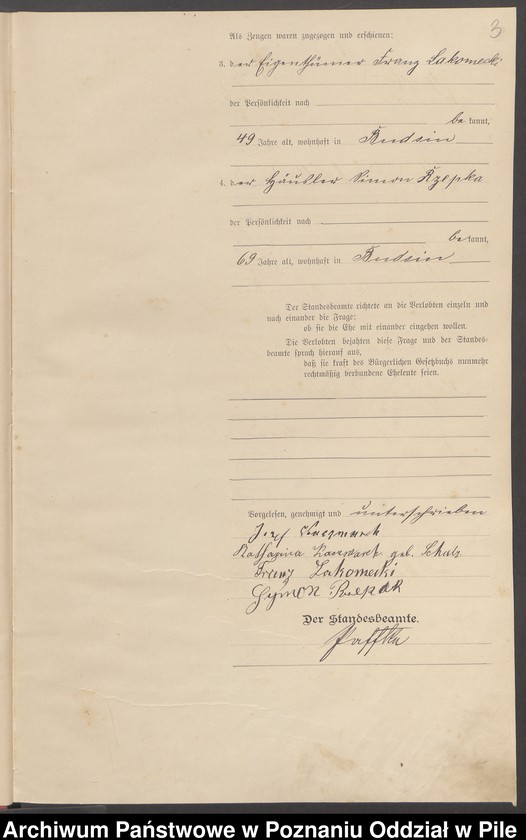 3
Als Zeugen waren zugezogen und erschienen:
3. der Eigenthümer Franz Lakomecki
der Persönlichkeit nach
be kannt,
49 Jahre alt, wohnhaft in Budsin
4. der Häusler Simon Rzepka
der Persönlichkeit nach
be kannt,
69 Jahre alt, wohnhaft in Budsin
Der Standesbeamte richtete an die Verlobten einzeln und
nach einander die Frage:
ob sie die Ehe mit einander eingehen wollen.
Die Verlobten bejahten diese Frage und der Standes-
beamte sprach hierauf aus,
daß sie kraft des Bürgerlichen Gesetzbuchs nunmehr
rechtmäßig verbundene Eheleute seien.
Vorgelesen, genehmigt und unterschrieben
Jozef Kaczmarek
Katharina geb. Schulz
Franz Lakomecki
Szymon
Der Standesbeamte.
Archiwum Państwowe w Poznaniu Oddział w Pile